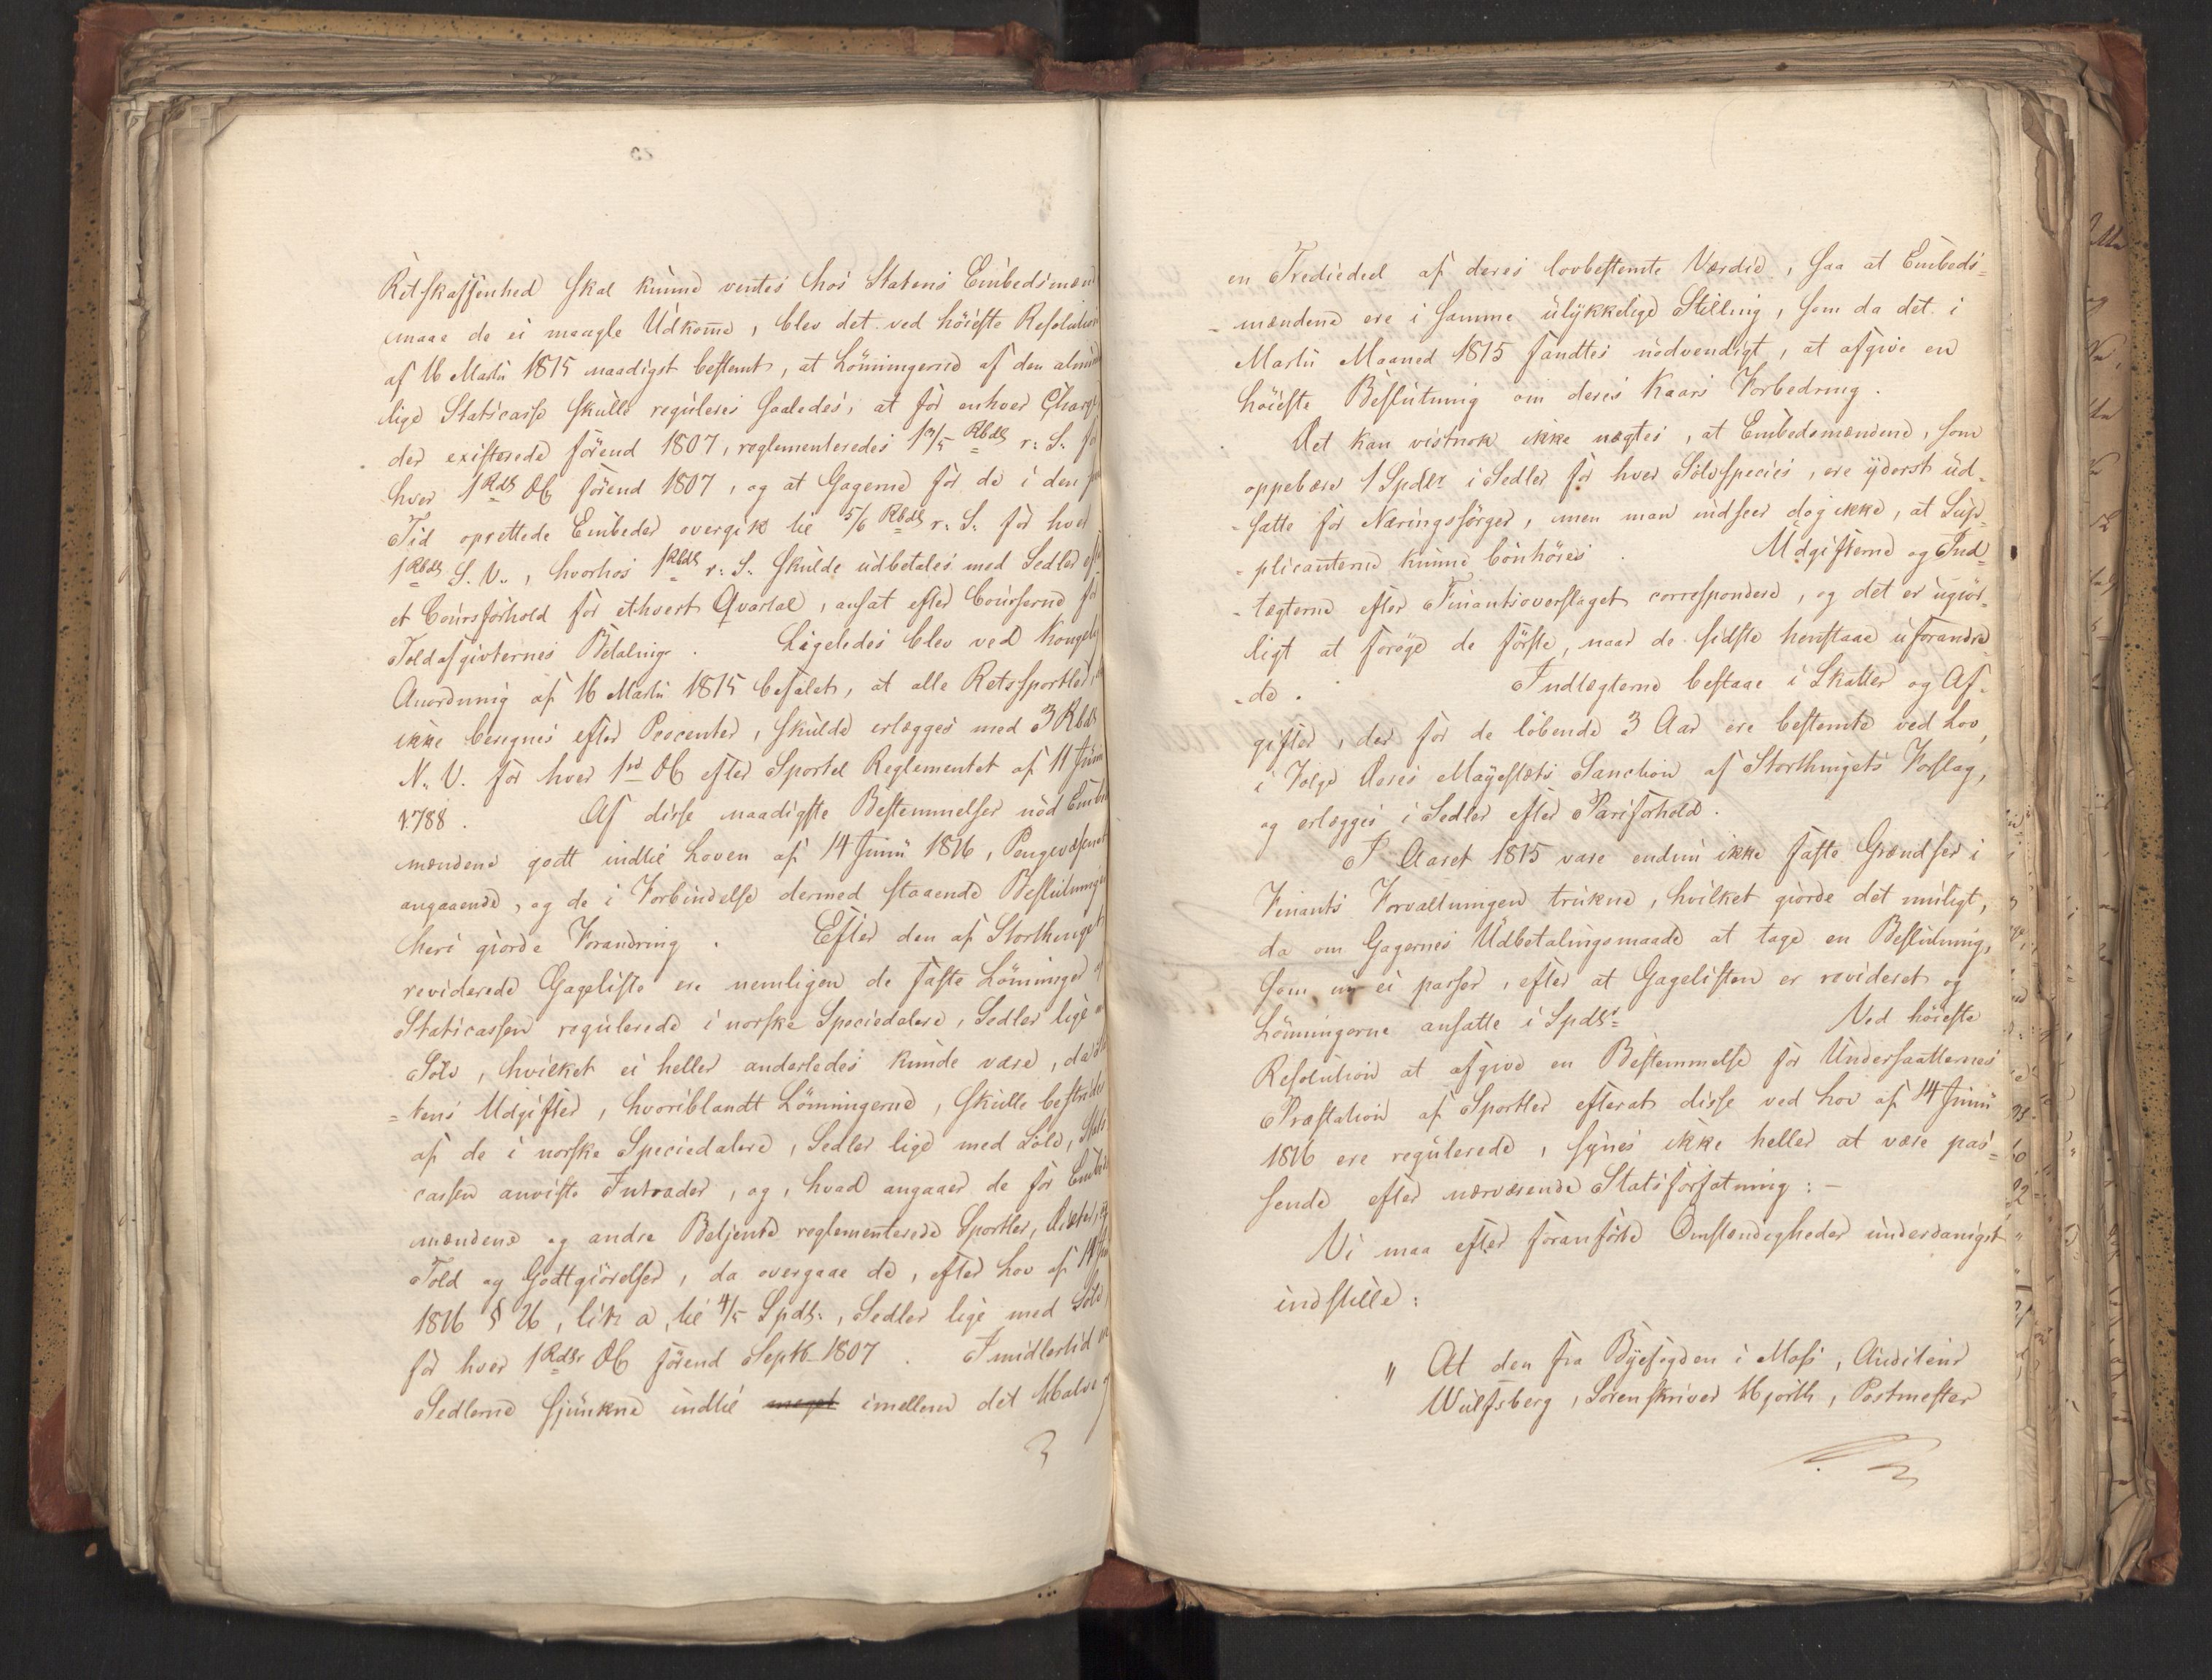 Retskaffenhed skal kunne ventes hos Statens Embedsmænd
maae de ei mangle Udkomme, blev det ved höieste Resolution
af 16 Martii 1815 naadigst bestemt, at Lönningerne af den almin
lige Statscasse skulle reguleres saaledes, at for enhver Charge,
der existerede förend 1807, reglementeredes 1 3/5 Rbdlr r: S. for
hver 1 Rdlr DC förend 1807, og at Gagerne for de i den
Tid oprettede Embeder overgik til 5/6 Rbdlr r: S. for hver
1 Rbdlr S. V., hvorhos 1 Rbdlr r: S. skulde udbetales med Sedler
et Coursforhold for ethvert Qvartal, ansat efter Courserne for
Toldafgivternes Betaling. Ligeledes blev ved Kongelig
Anordning af 16 Martii 1815 befalet, at alle Retssportler,
ikke beregnes efter Procenter, skulde erlægges med 3 Rbdlr
N. V. for hver 1 rd DC efter Sportel Reglementet af 11 Junii
1788. Af disse naadigste Bestemmelser nöd Embeds
mændene godt indtil Loven af 14 Junii 1816, Pengevæsenet
angaaende, og de i Forbindelse dermed staaende Beslutninger
heri giorde Forandring. Efter den af Storthinget
reviderede Gageliste ere nemligen de faste Lönninger af
Statscassen regulerede i norske Speciedalere, Sedler lige med
Sölv, hvilket ei heller anderledes kunde være, da Sta
=tens Udgifter, hvoriblandt Lönningerne, skulle bestrides
af de i norske Speciedalere, Sedler lige med Sölv, Stats
cassen anviste Intrader, og, hvad angaaer de for Embeds
mændene og andre Betjente reglementerede Sportler, Diæter,
Told og Godtgiörelser, da overgaae de, efter Lov af 14 Junii
1816 § 26, litr a, til 4/5 Spdlr, Sedler lige med Sölv,
for hver 1 Rdlr DC förend Septb 1807. Imidlertid
Sedlerne sjunkne indtil meget imellem det Halve og
en Trediedeel af deres lovbestemte Værdie, saa at Embeds=
=mændene ere i samme ulykkelige Stilling, som da det i
Martii Maaned 1815 fandtes nödvendigt, at afgive en
höieste Beslutning om deres Kaars Forbedring.
Det kan vistnok ikke nægtes, at Embedsmændene, som
oppebære 1 Spdlr i Sedler for hver Sölvspecies, ere yderst ud=
=satte for Næringssorger, men man indseer dog ikke, at Sup=
=plicanterne kunne bönhöres. Udgifterne og Ind=
=tægterne efter Finantsoverslaget correspondere, og det er ugiör=
ligt at foröge de förste, naar de sidste henstaae uforandre=
=de. Indtægterne bestaae i Skatter og Af=
gifter, der for de löbende 3 Aar ere bestemte ved Lov,
i Fölge Deres Majestæts Sanction af Storthingets Forslag,
og erlægges i Sedler efter Pariforhold.
I Aaret 1815 vare endnu ikke faste Grændser i
Finants Forvaltningen trukne, hvilket giorde det muligt,
da om Gagernes Udbetalingsmaade at tage en Beslutning,
som nu ei passer, efter at Gagelisten er revideret og
Lönningerne ansatte i Spdlr= Ved höieste
Resolution at afgive en Bestemmelse for Undersaatternes
Præstation af Sportler efterat disse ved Lov af 14 Junii
1816 ere regulerede, synes ikke heller at være pas=
sende efter nærværende Statsforfatning: -
Vi maa efter foranförte Omstændigheder underdanigst
indstille:
" At den fra Byefogden i Moss, Auditeur
Wulfsberg, Sorenskriver Hjorth, Postmester